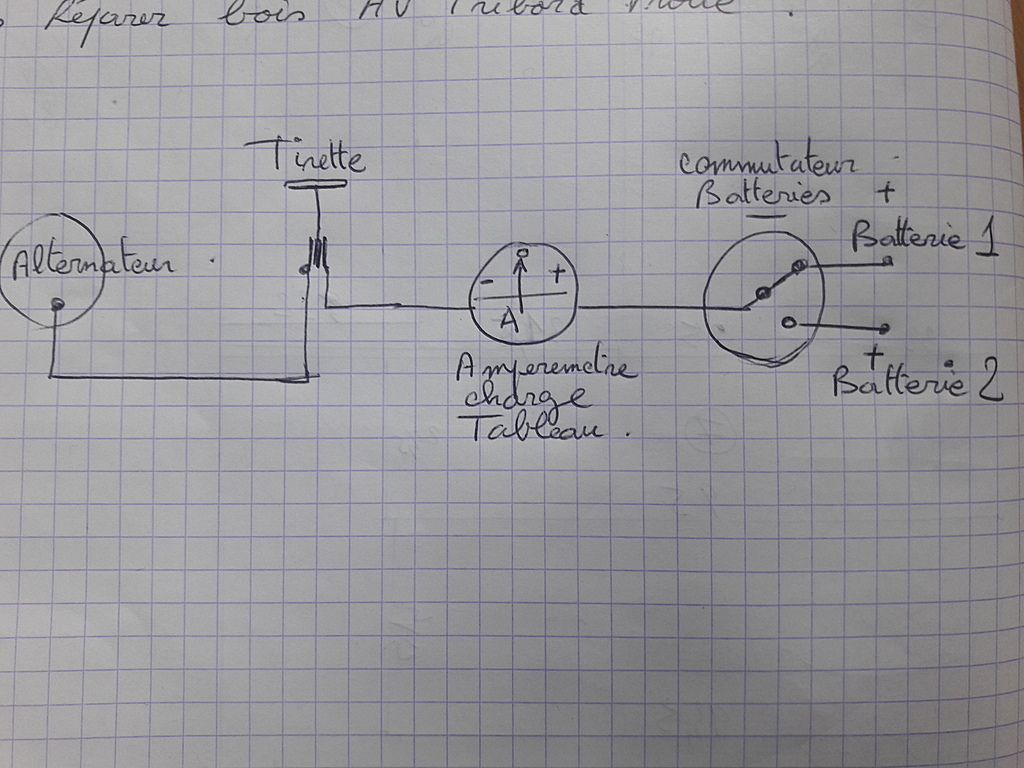 Réparer bois AV Tribord
Tirette
Alternateur .
- +
A
Amperemetre
charge
Tableau .
commutateur
Batteries +
Batterie 1
+
Batterie 2